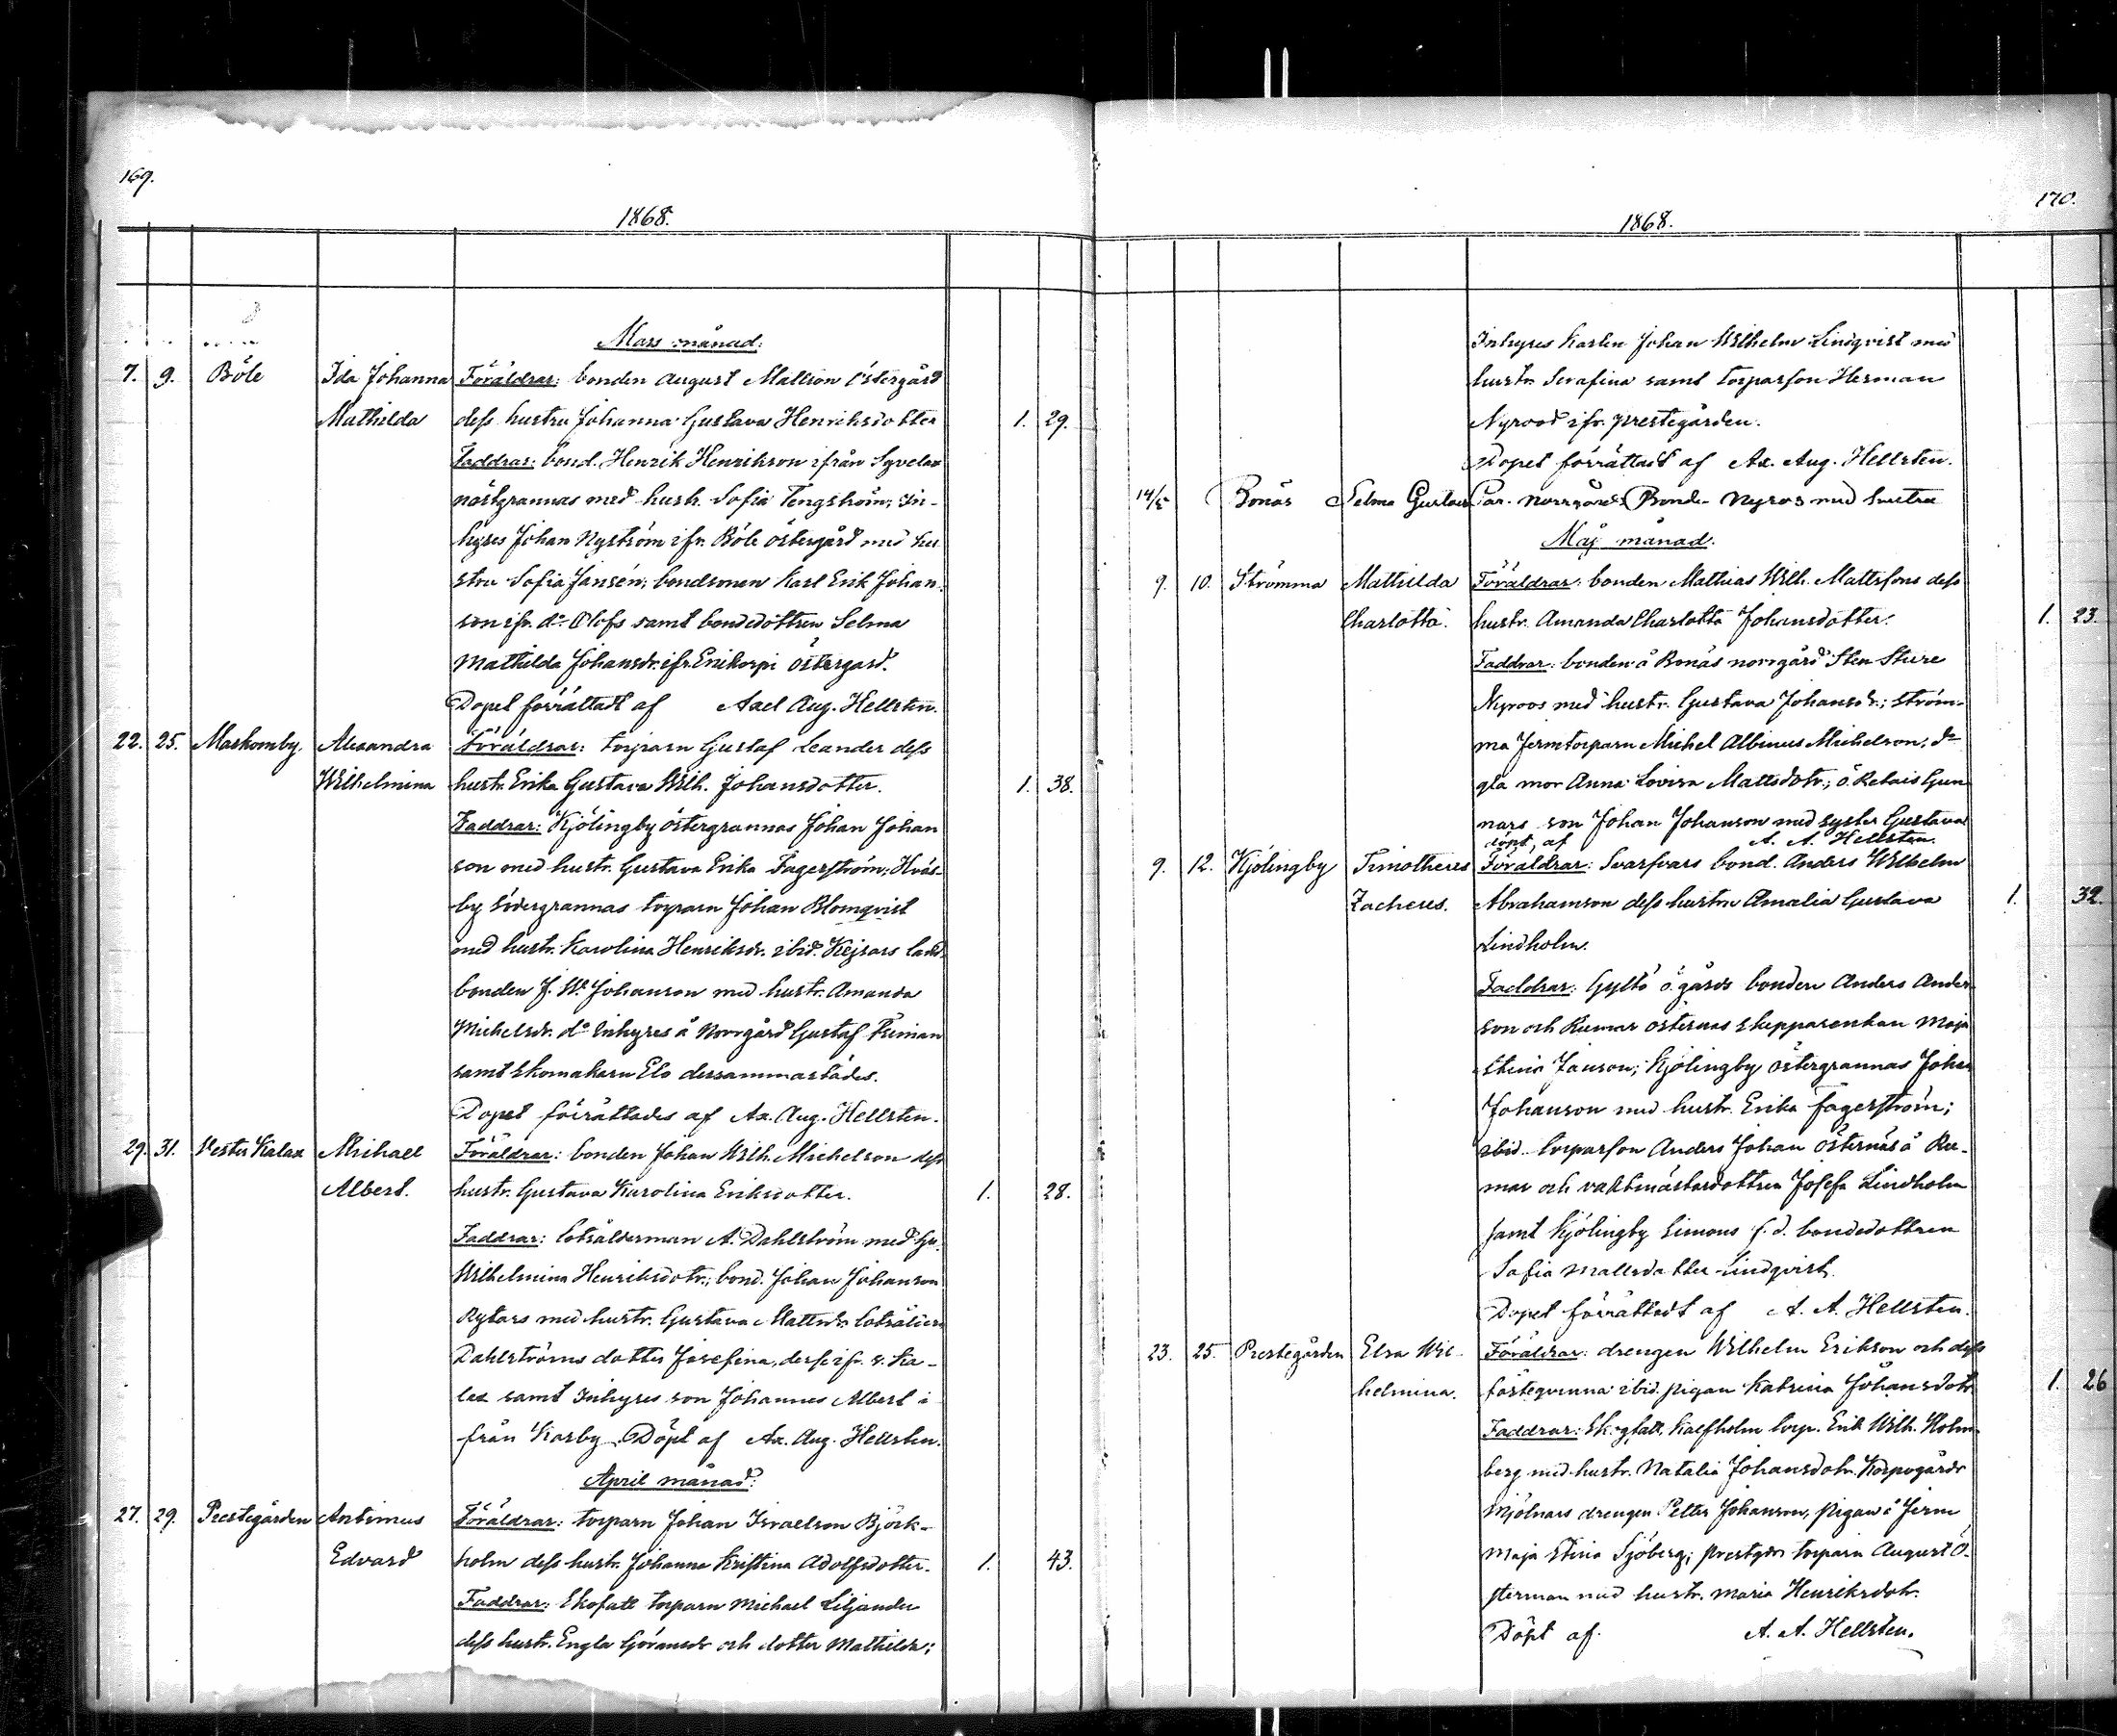 169.
1868.
Mars månad:
7. 9. Böle Ida Johanna Föräldrar: bonden August Mattson Östergård
Mathilda dess hustru Johanna Gustava Henriksdotter 1. 29.
Faddrar: bond. Henrik Henrikson ifrån Syvelax
nästgrannas med hustr. Sofia Tengström; In-
hyses Johan Nyström ifr. Böle östergård med hu
stru Sofia Jansén; bondsonen Karl Erik Johan-
son ifr. do Olofs samt bondedottren Selma
Mathilda Johansdr. ifr. östergård.
Dopet förrättadt af Axel Aug. Hellsten.
22. 25. Maskomby. Alexandra Föräldrar: torparn Gustaf Leander dess
Wilhelmina hustr. Erika Gustava Wilh. Johansdotter. 1. 38.
Faddrar: Kjölingby östergrannas Johan Johan
son med hustr. Gustava Erika Fagerström; Hväs-
by södergrannas torparn Johan Blomqvist
med hustr. Karolina Henriksdr. ibid. Kejsars land
bonden J. W. Johanson med hustr. Amanda
Michelsdr. do Inhyses å Norrgård Gustaf
samt skomakarn Elo dersammastädes.
Dopet förrättades af Ax. Aug. Hellsten.
29. 31. Vester Kalax Michael Föräldrar: bonden Johan Wilh. Michelson dess
Albert. hustr. Gustava Karolina Eriksdotter. 1. 28.
Faddrar: lotsålderman A. Dahlström med hu.
Wilhelmina Henriksdotr.; bond. Johan Johanson
Rykars med hustr. Gustava Mattsdr. lotsålderm
Dahlströms dotter Josefina, ifr. v. Ka-
lax samt Inhyses son Johannes Albert i
från Karby. Döpt af Ax. Aug. Hellsten.
April månad:
27. 29. Prestegården Antimus Föräldrar: torparn Johan Israelson Björk-
Edvard holm dess hustr. Johanna Kristina Adolfsdotter. 1. 43.
Faddrar: Skofatt torparn Michael Liljander
dess hustr. Engla Göransdr och dotter Mathilda;
170.
1868.
Inhyses Karlen Johan Wilhelm Lindqvist med
hustr. Serafina samt torparson Herman
Nyrood ifr. prestegården.
Dopet förrättadt af Ax. Aug. Hellsten.
14/5 Bonäs Selma Gustava Par. Norrgårds Bonde Nyros med hustru
Maj månad.
9. 10. Strömma Mathilda Föräldrar: bonden Mathias Wilh. Mattsons dess
Charlotta. hustr. Amanda Charlotta Johansdotter. 1. 23.
Faddrar: bonden å Bonäs norrgård Sten Sture
Nyroos med hustr. Gustava Johansdr.; Ström-
ma Jermtorparn Michel Albinus Michelson, do
gla mor Anna Lovisa Mattsdotr.; ö. Retais Gun
nars son Johan Johanson med syster Gustava
döpt, af A. A. Hellsten.
9. 12. Kjölingby Timotheus Föräldrar: Svarfvars bond. Anders Wilhelm
Zacheus. Abrahamson dess hustru Amalia Gustava 1. 32.
Lindholm.
Faddrar: Gyltö ö. gårds bonden Anders Ander
son och Rumar östernas skepparenkan Maja
Stina Janson; Kjölingby östergrannas Johan
Johanson med hustr. Erika Fagerström;
ibid. torparson Anders Johan Östernäs å Ru-
mar och vaktmästardottren Josefa Lindholm
samt Kjölingby Simons f. d. bondedottren
Sofia Mattsdotter Lindqvist.
Dopet förrättadt af A. A. Hellsten.
23. 25. Prestegården Elsa Wil- Föräldrar: drengen Wilhelm Erikson och dess
helmina. fästeqvinna ibid. pigan Katrina Johansdotr 1. 26
Faddrar: Kalfholm torp. Erik Wilh. Holm-
berg med hustr. Natalia Johansdotr. Korpogårds
Mjölnars drengen Petter Johanson, pigan å Jerm
Maja Stina Sjöberg; prestgårds torparn August Ö-
sterman med hustr. Maria Henriksdotr.
Döpt af A. A. Hellsten.